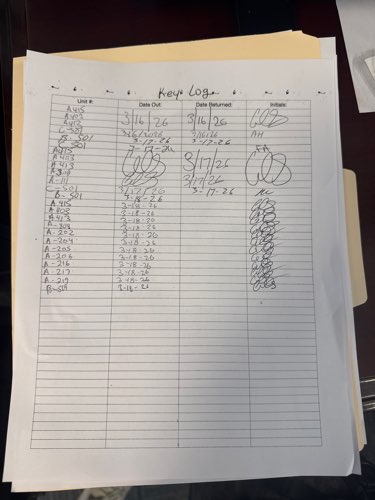 Keys Log
Unit #: Date Out: Date Returned: Initials:
A415
A403 3/16/26 3/16/26
A413
C-501 3/16/2026 3/16/26 AH
B-501 3-17-26 3-17-26
C-501 3-17-26 FA
A415
A403 3/17/26
A413
A308
A-111 3/17/26
C-501 3/17/26 3-17-26
B-501 3-18-26
A 415 3-18-26
A 403 3-18-26
A 413 3-18-26
A-308 3-18-26
A-202 3-18-26
A-204 3-18-26
A-205 3-18-26
A-206 3-18-26
A-216 3-18-26
A-217 3-18-26
A-219 3-18-26
B-501 3-18-26